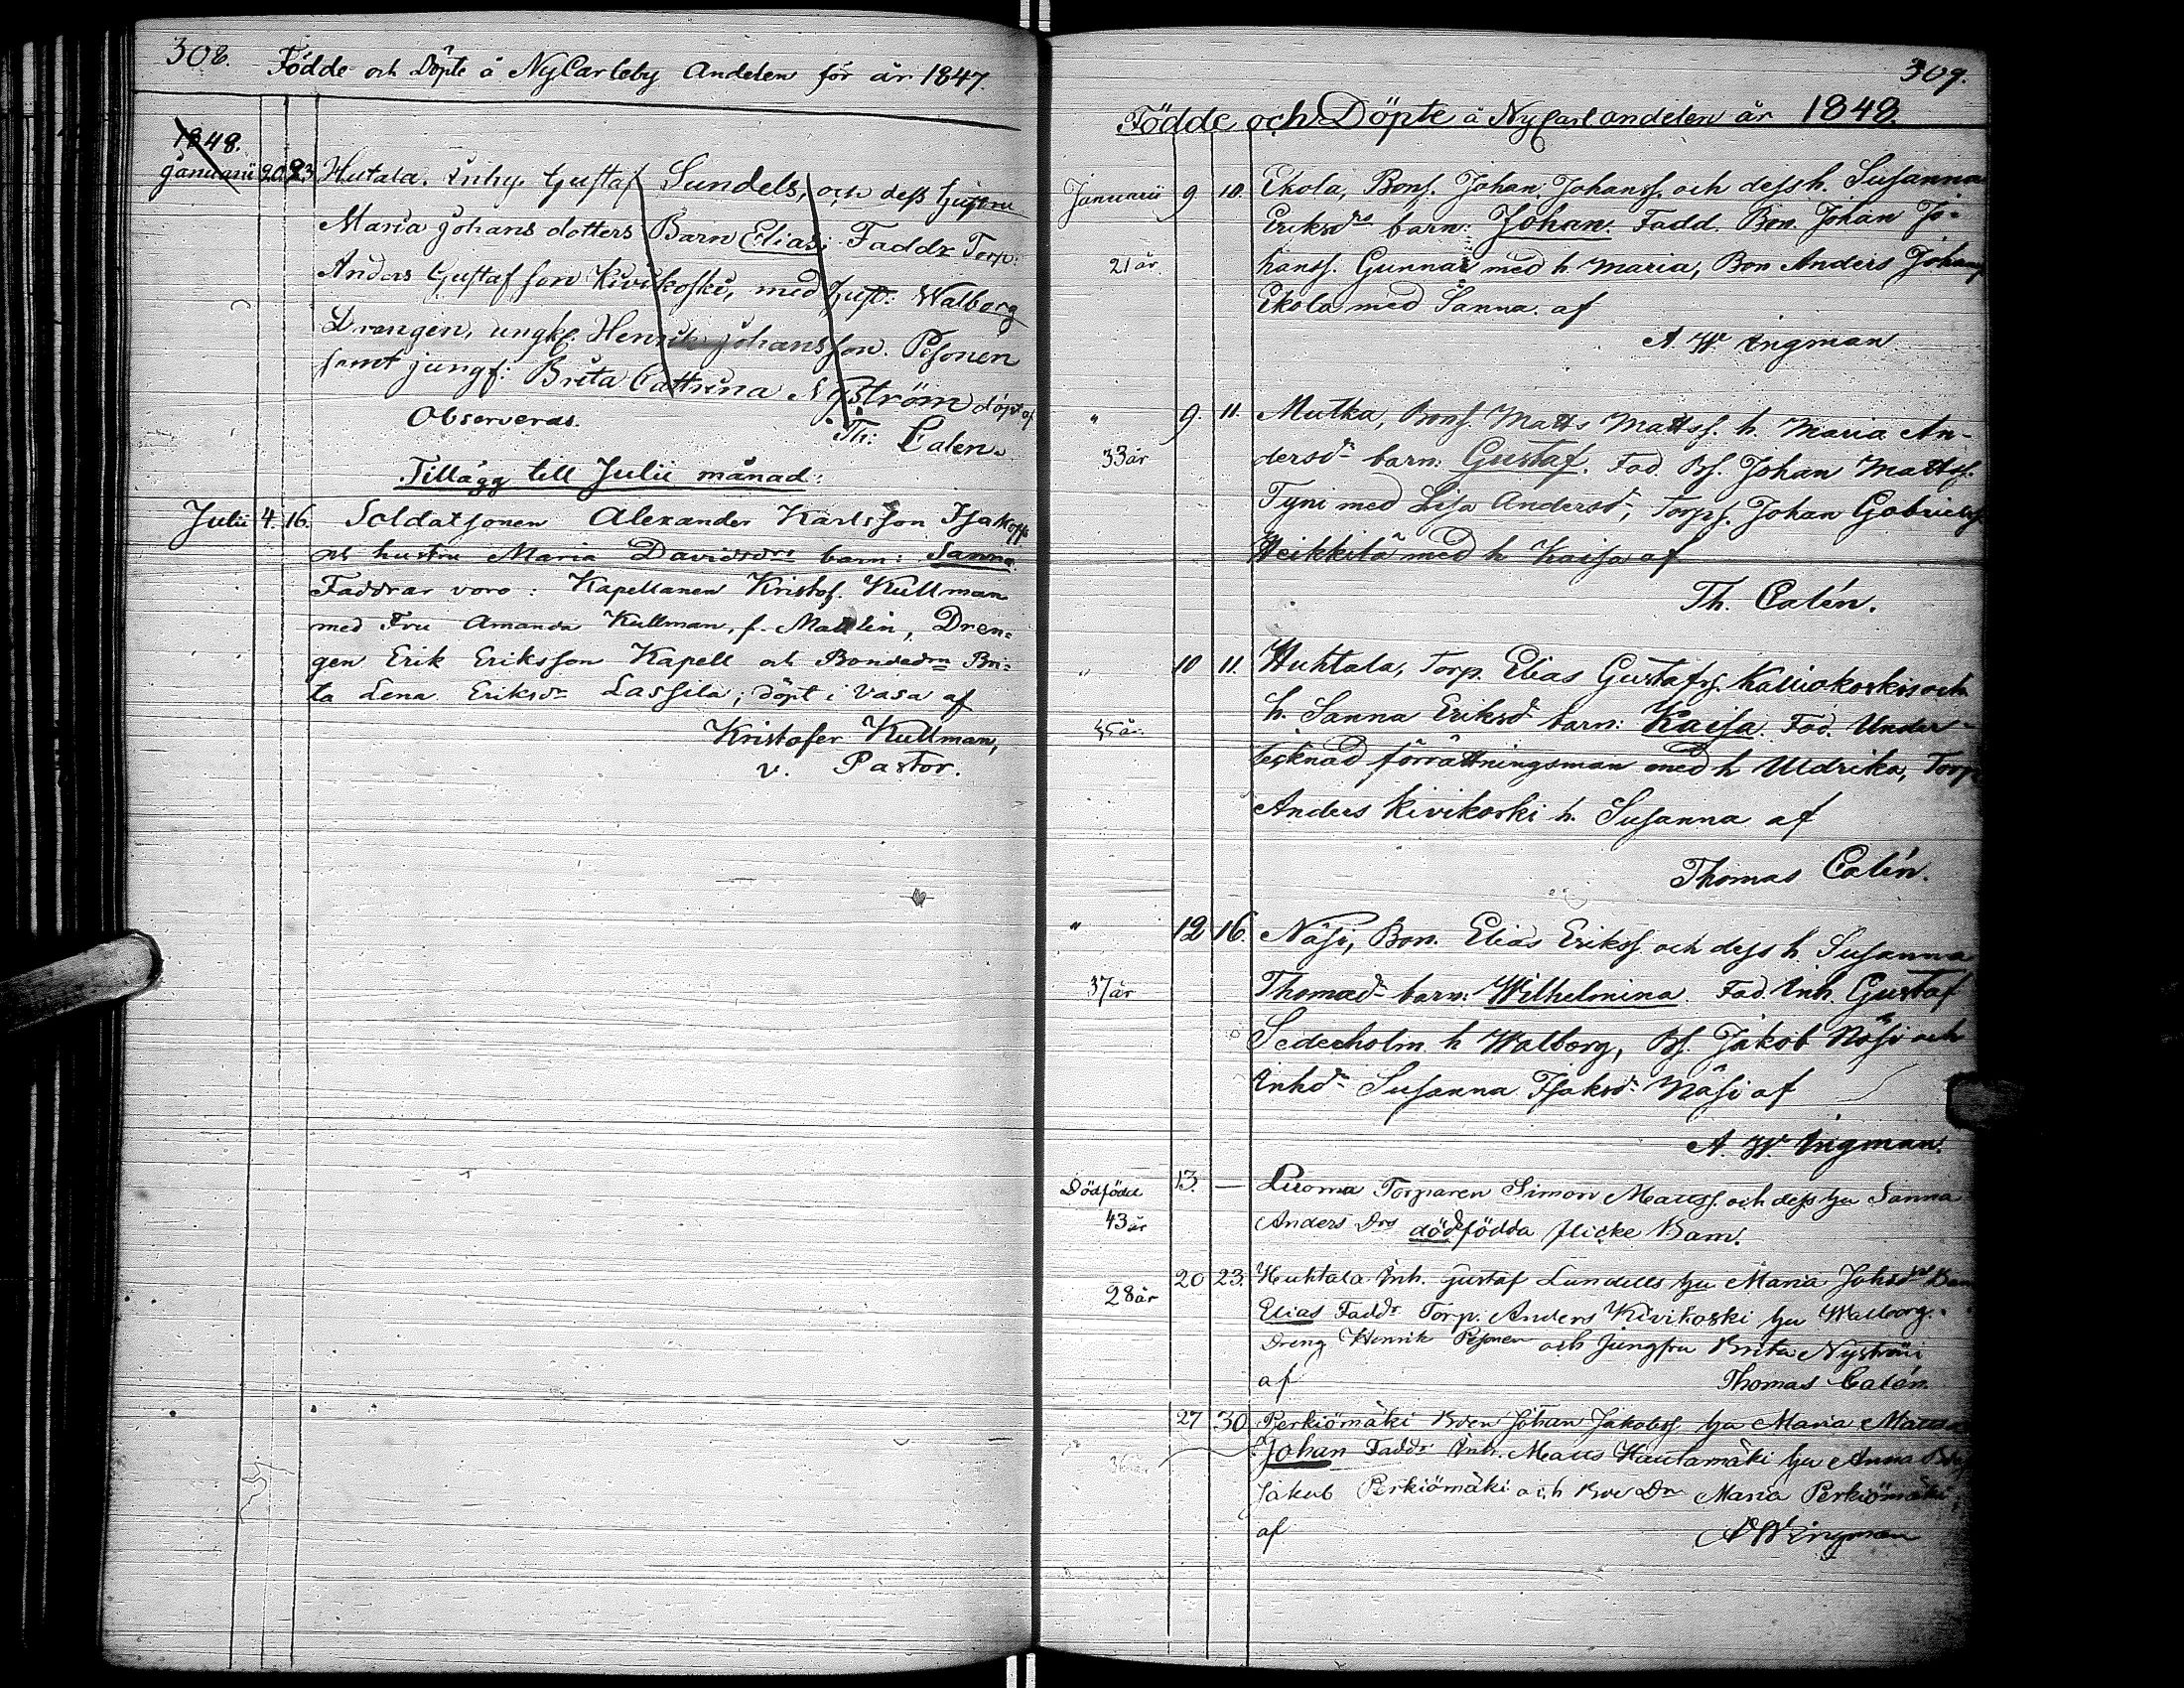 308.
Födde och Döpte å NyCarleby Andelen för år 1847.
1848.
Januarii 20. 23. Hutala. Inhy. Gustaf Lundels, och dess hustru
Maria Johans dotters Barn Elias; Faddr Torp:
Anders Gustaf son Kivikoski, med hust: Walborg
Drengen, ungk. Henrik Johans son. Pesonen
samt jungf: Brita Cattrina Nyström döpt af
Observeras. Th: Calen.
Tillägg till Julii månad:
Julii 4. 16. Soldatsonen Alexander Karlsson Isakoff
och hustru Maria Davidsdrs barn: Sanna.
Faddrar voro: Kapellanen Kristof. Kullman
med Fru Amanda Kullman, f. Mallin, Dren-
gen Erik Eriksson Kapell och Bondedrn Bri-
ta Lena Eriksdr Lassila; döpt i Vasa af
Kristofer Kullman,
v. Pastor.
309.
Födde och Döpte å NyCarl andelen år 1848.
Januarii 9. 10. Ekola, Bons. Johan Johanss. och dess h. Susanna
Eriksdrs barn: Johan. Fadd. Bon. Johan Jo-
21 år hanss. Gunnar med h. Maria, Bon Anders Johans
Ekola med Sanna. af
A. W. Ingman
" 9. 11. Mutka, Bons. Matts Mattss. h. Maria An-
33 år dersdr barn: Gustaf. Fad. Bs. Johan Mattss.
Tyni med Lisa Andersdr, Torps. Johan Gabriels
Heikkilä med h Kaisa af
Th. Calén.
" 10 11. Huhtala, Torp. Elias Gustafss. Kalliokoskis och
45 år. h. Sanna Eriksdr barn: Kaisa. Fad. Under-
tecknad förrättningsman med h Uldrika, Torp.
Anders Kivikoski h. Susanna af
Thomas Calén.
" 12 16. Näsi, Bon. Elias Erikss. och dess h. Susanna
37 år Thomasdr barn: Wilhelmina. Fad. Inh. Gustaf
Sederholm h Walborg, Bs. Jakob Näsi och
Inhdr Susanna Isaksdr Näsi af
A. W. Ingman.
Dödfödd 13. — Luoma Torparen Simon Matss. och dess hu Sanna
43 år Anders Drs dödfödda flicke Barn.
20 23. Huhtala Inh. Gustaf Lundells hu Maria Johsdrs Barn
28 år Elias Faddr Torp. Anders Kivikoski hu Walborg.
Dreng Henrik Pesonen och Jungfru Brita Nyström
af Thomas Calén.
27 30 Perkiömäki Bden Johan Jakobss. hu Maria Matsdr
36 år Johan Faddr Inh. Matts Hautamäki hu Anna
Jakob Perkiömäki och Bde Dr Maria Perkiömäki
af A W Ingman